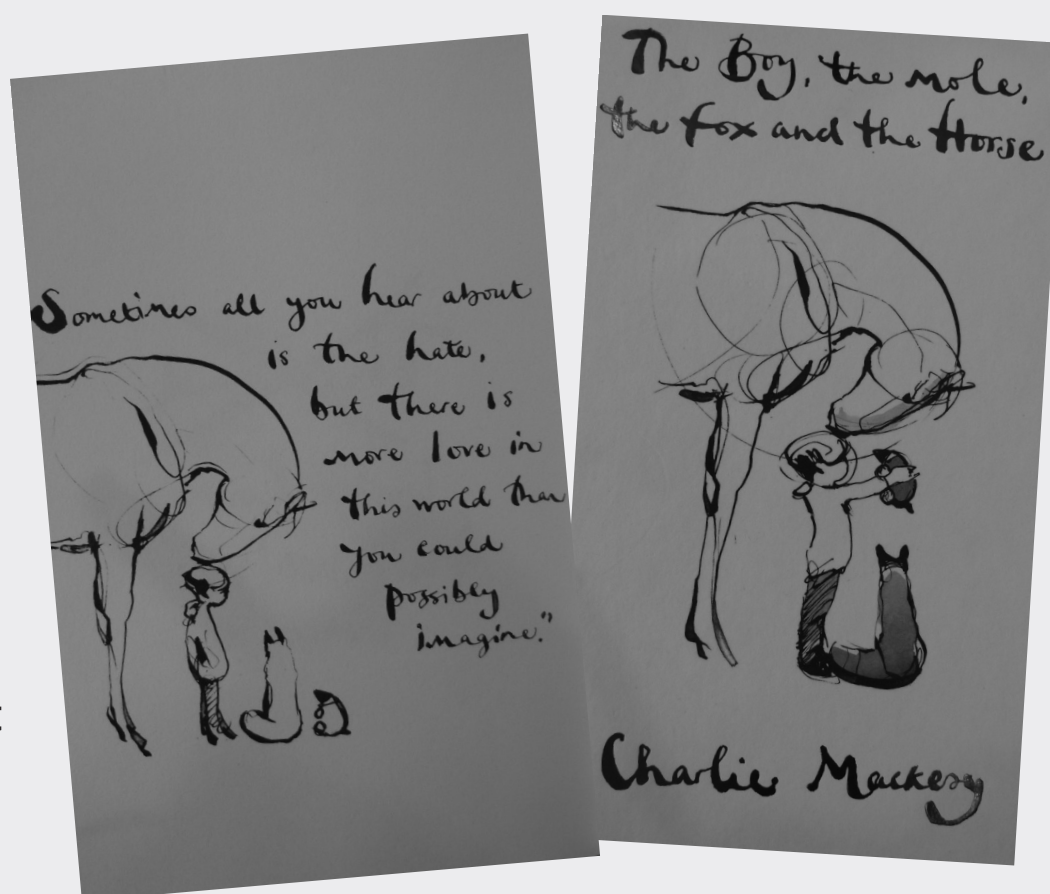 Sometimes all you hear about
is the hate,
but there is
more love in
this world than
you could
possibly
imagine."
The Boy, the mole,
the fox and the Horse
Charlie Mackesy